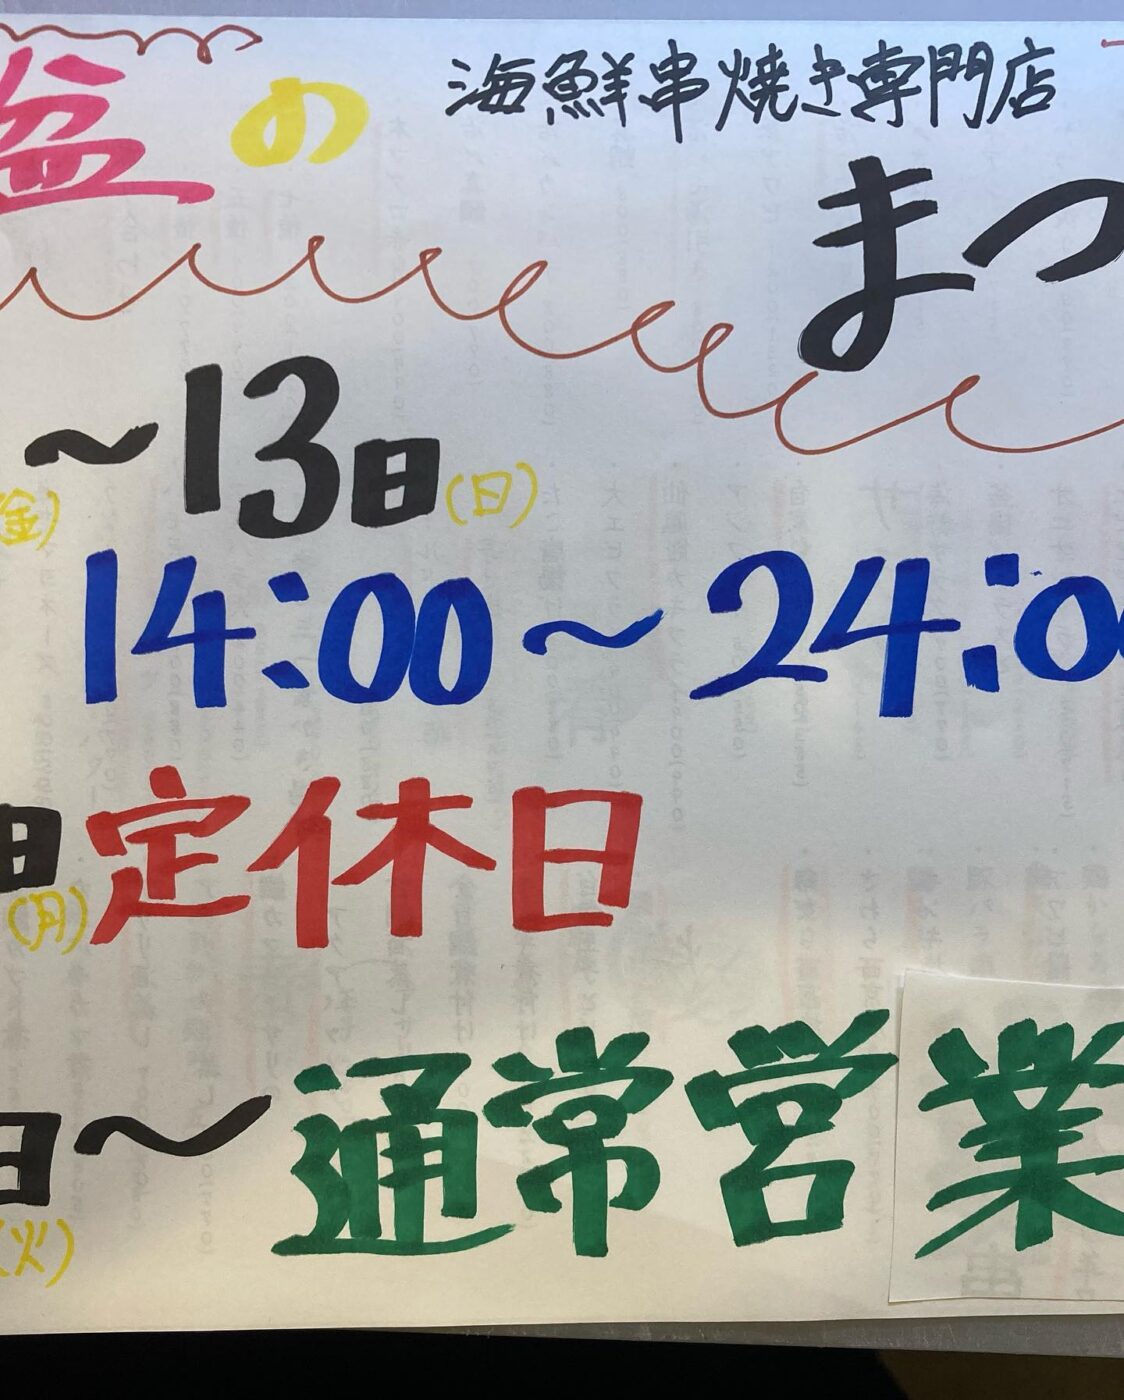 盆の
海鮮串焼き専門店
まつ
～13日(日)
(金)
14:00～24:0
日定休日
(月)
日～通常営業
(火)